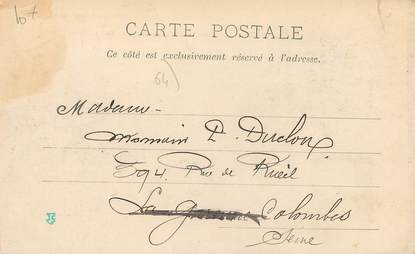 lot
CARTE POSTALE
Ce côté est exclusivement réservé à l'adresse.
64
Madame
P. Duclou
Rue de Rueil
La Colombes
Seine